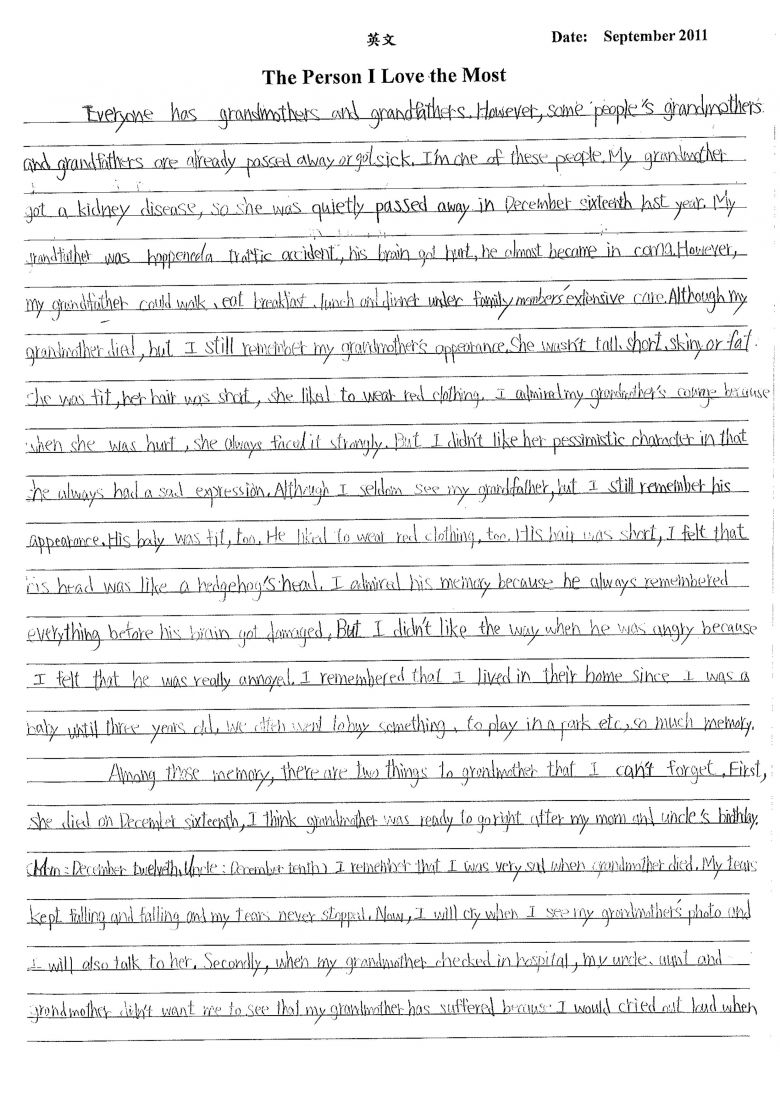 英文
Date: September 2011
The Person I Love the Most
Everyone has grandmothers and grandfathers. However, some people's grandmothers
and grandfathers are already passed away or got sick. I'm one of these people. My grandmother
got a kidney disease, so she was quietly passed away in December sixteenth last year. My
grandfather was happened a traffic accident, his brain got hurt, he almost became in coma. However,
my grandfather could walk、eat breakfast、lunch and dinner under family members' extensive care. Although my
grandmother died, but I still remember my grandmother's appearance. She wasn't tall、short、skiny or fat.
She was fit, her hair was short, she liked to wear red clothing. I admired my grandmother's courage because
when she was hurt, she always faced it strongly. But I didn't like her pessimistic character in that
she always had a sad expression. Although I seldom see my grandfather, but I still remember his
appearance. His body was fit, too. He liked to wear red clothing, too. His hair was short, I felt that
his head was like a hedgehog's head. I admired his memory because he always remembered
everything before his brain got damaged. But I didn't like the way when he was angry because
I felt that he was really annoyed. I remembered that I lived in their home since I was a
baby until three years old, we often went to buy something、to play in a park etc, so much memory.
Among those memory, there are two things to grandmother that I can't forget. First,
she died on December sixteenth, I think grandmother was ready to go right after my mom and uncle's birthday.
(Mom: December twelveth. Uncle: December tenth) I remember that I was very sad when grandmother died. My tears
kept falling and falling and my tears never stopped. Now, I will cry when I see my grandmother's photo and
I will also talk to her. Secondly, when my grandmother checked in hospital, my uncle、aunt and
grandmother didn't want me to see that my grandmother has suffered because I would cried out loud when